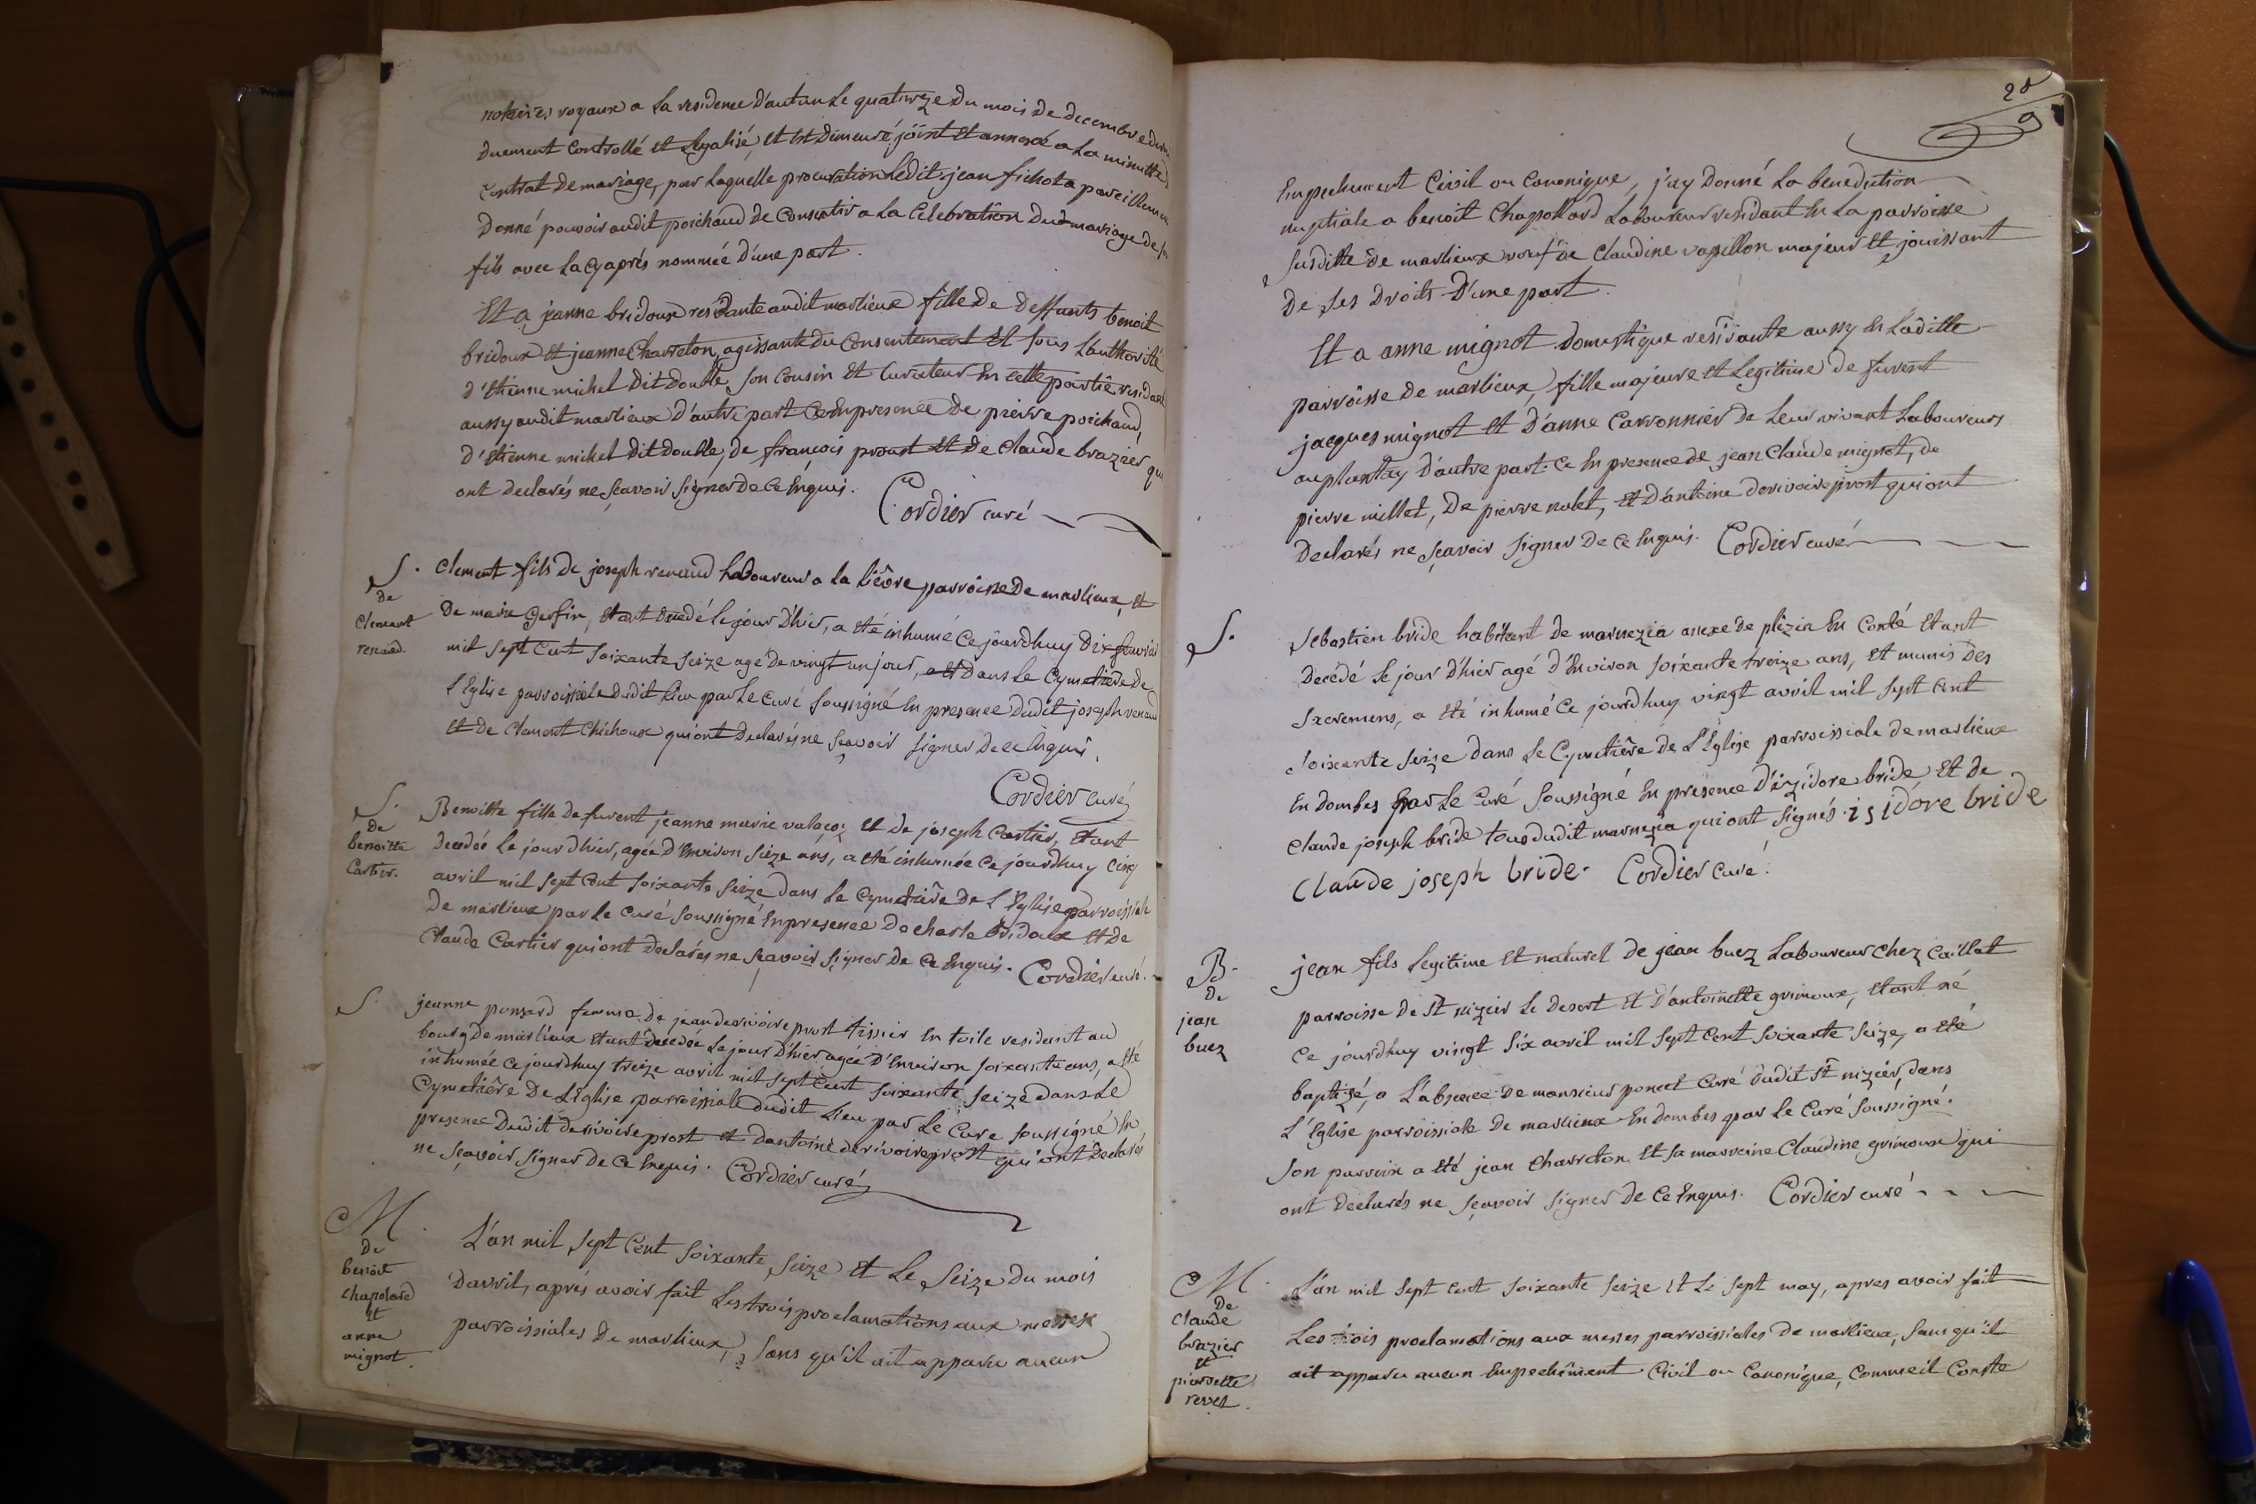 notaires royaux a la residence d'autun le quatorze du mois de decembre
duement controllé et legalisé, et est demeuré joint et annexé a la minutte
contrat de mariage, par laquelle procuration ledit jean fichot a pareillement
donné pouvoir audit poichaud de consentir a la celebration du mariage de
fils avec la cy aprés nommée d'une part.
Et a jeanne bridoux residante audit marlieux fille de deffunts benoit
bridoux et jeanne Charreton, agissante du consentement et sous l'authorité
d'etienne michel dit double son cousin et curateur en cette partie residant
aussy audit marlieux d'autre part ce en presence de pierre poichaud,
d'etienne michel dit double, de francois prout et de claude brazier qui
ont declarés ne sçavoir signer de ce enquis. Cordier curé
S. de Clement renaud.
clement fils de joseph renaud laboureur a la lieôre parroisse de marlieux, et
de marie Gerfin, etant decedé le jour d'hier, a eté inhumé ce jourdhuy dix feuvrier
mil sept cent soixante seize agé de vingt un jour, dans le cymetiere de
l'Eglise parroissiale dudit lieu par le curé soussigné en presence dudit joseph renaud
et de clement chichoux qui ont declarés ne sçavoir signer de ce enquis.
Cordier curé
S. de benoitte Cartier.
Benoitte fille de fuvent jeanne marie valaços et de joseph Cartier, etant
decedée le jour d'hier, agée d'environ seize ans, a eté inhumée ce jourdhuy cinq
avril mil sept cent soixante seize dans le cymetiere de l'Eglise parroissiale
de marlieux par le curé soussigné en presence de charle bridoux et de
Claude Cartier qui ont declarés ne sçavoir signer de ce enquis. Cordier curé.
S. jeanne ponsard femme de jean derivoire prost tissier en toile residant au
bourg de marlieux etant decedée le jour d'hier agée d'environ soixante ans, a eté
inhumée ce jourdhuy treize avril mil sept cent soixante seize dans le
Cymetiêre de l'Eglise parroissiale dudit lieu par le curé soussigné en
presence dudit derivoire prost et d'antoine derivoire prost qui ont declarés
ne sçavoir signer de ce enquis. Cordier curé
M. de benoit chapolard et anne mignot.
L'an mil sept cent soixante seize et le seize du mois
d'avril, aprés avoir fait les trois proclamations aux messes
parroissiales de marlieux, sans qu'il ait apparu aucun
28
9
Empechement civil ou canonique, j'ay donné la benediction
nuptiale a benoit Chapollard laboureur residant en la parroisse
susditte de marlieux veuf de Claudine vapillon majeur et jouissant
de ses droits d'une part.
Et a anne mignot domestique residante aussy en laditte
parroisse de marlieux, fille majeure et legitime de fuvent
jacques mignot et d'anne Carronnier de leur vivant laboureurs
au plantay d'autre part. ce en presence de jean claude mignot, de
pierre millet, de pierre nulet, et d'antoine derivoire prost qui ont
declarés ne sçavoir signer de ce enquis. Cordier curé
S. Sebastien bride habitant de marnezia anexe de plizia en conté etant
decédé le jour d'hier agé d'environ soixante treize ans, et munis des
sacremens, a eté inhumé ce jourdhuy vingt avril mil sept cent
soixante seize dans le cymetiêre de l'Eglise parroissiale de marlieux
en dombes par le curé soussigné en presence d'izidore bride et de
claude joseph bride tous dudit marnezia qui ont signés. isidore bride
Claude joseph bride. Cordier curé.
B. de jean buez
jean fils legitime et naturel de jean buez laboureur chez Caillat
parroisse de St nizier le desert et d'antoinette grimoux, etant né
ce jourdhuy vingt six avril mil sept cent soixante seize, a eté
baptisé, a l'absence de monsieur poncet curé dudit St nizier, dans
l'Eglise parroissiale de marlieux en dombes par le curé soussigné.
son parrein a eté jean charreton et sa marreine Claudine grimoux qui
ont declarés ne sçavoir signer de ce enquis. Cordier curé
M. de Claude brazier et pierrette revet.
L'an mil sept cent soixante seize et le sept may, apres avoir fait
les trois proclamations aux messes parroissiales de marlieux, sans qu'il
ait apparu aucun empechêment civil ou canonique, comme il conste